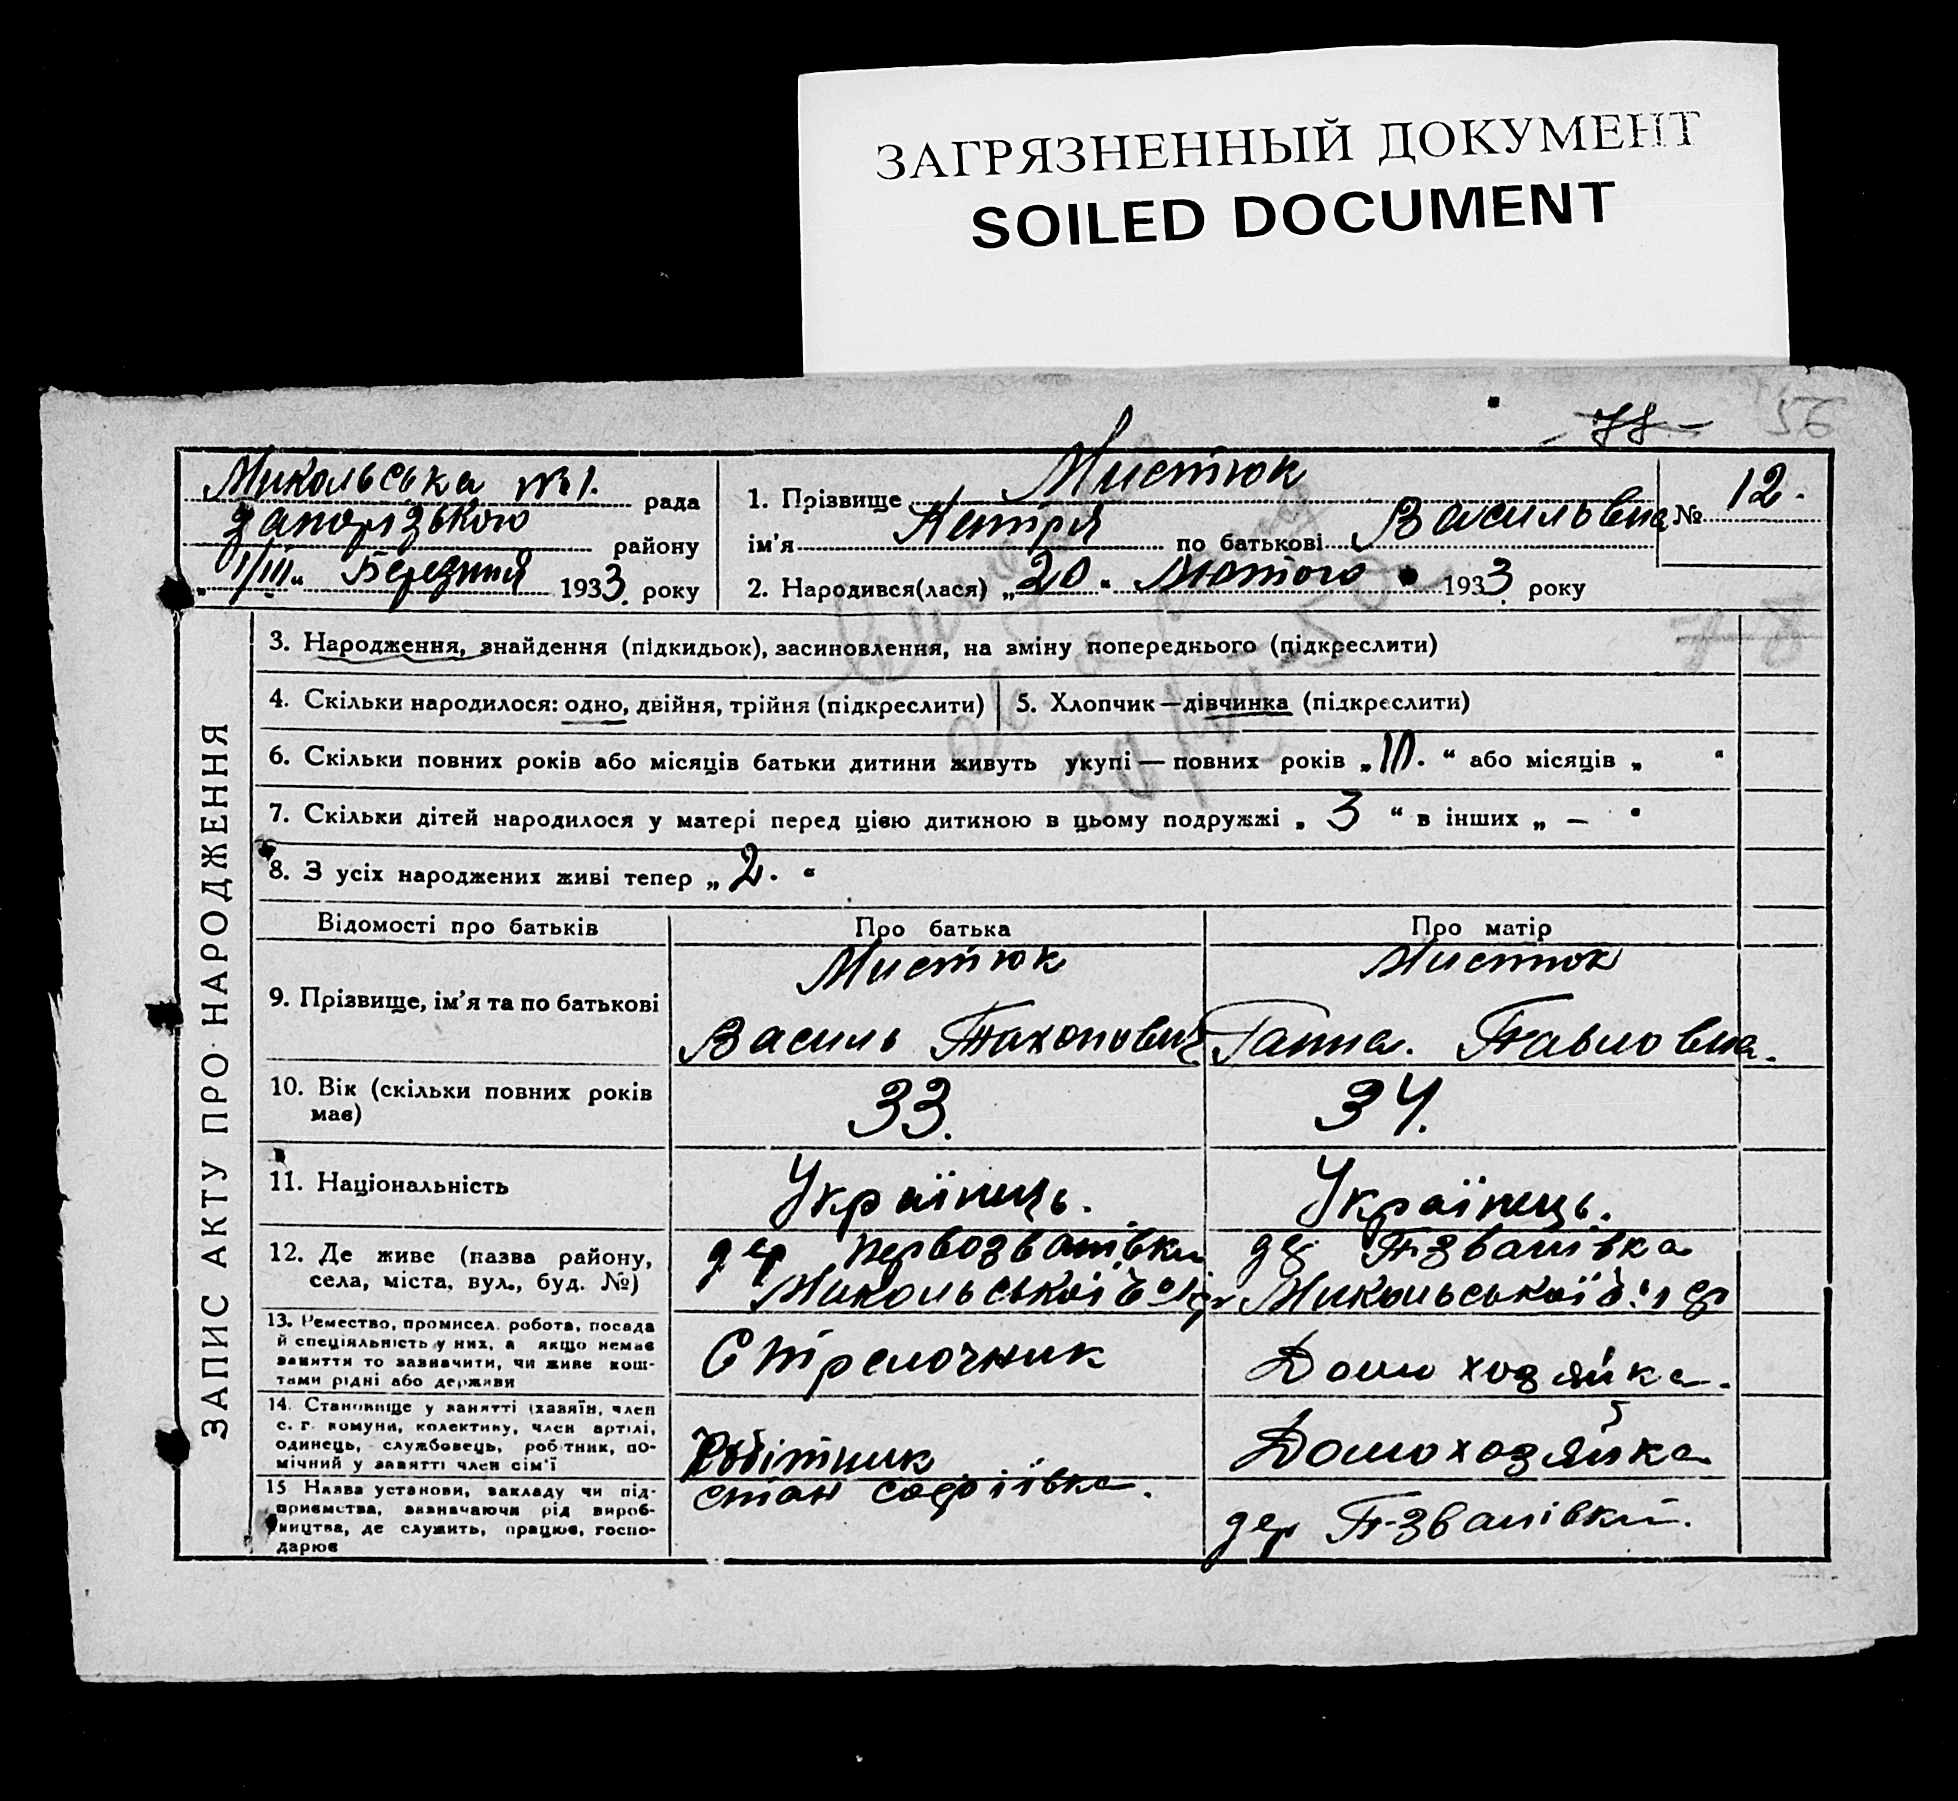 ЗАГРЯЗНЕННЫЙ ДОКУМЕНТ
SOILED DOCUMENT
78
56
Микольська №1. рада
Запорізького району
"1/III" Березний 1933 року
1. Прізвище Мистюк
ім'я Петря по батькові Васильевна
№ 12.
2. Народився(лася) „20" Лютого 1933 року
78
ЗАПИС АКТУ ПРО НАРОДЖЕННЯ
3. Народження, знайдення (підкидьок), засиновлення, на зміну попереднього (підкреслити)
4. Скільки народилося: одно, двійня, трійня (підкреслити)
5. Хлопчик—дівчинка (підкреслити)
6. Скільки повних років або місяців батьки дитини живуть укупі — повних років „10." або місяців „ "
7. Скільки дітей народилося у матері перед цією дитиною в цьому подружжі „ 3 " в інших „ — "
8. З усіх народжених живі тепер „2."
Відомості про батьків
Про батька
Про матір
9. Прізвище, ім'я та по батькові
Мистюк
Василь Пахонович
Мистюк
Ганна. Павловна.
10. Вік (скільки повних років має)
33.
34.
11. Національність
Українець.
Українець.
12. Де живе (назва району, села, міста, вул., буд. №)
дер Первозванівки
Микольської
П-званівка
Микольської
13. Ремество, промисел, робота, посада й спеціяльність у них, а якщо немає заняття то зазначити, чи живе коштами рідні або держави
Стрелочник
Домохозяйка.
14. Становище у занятті (хазяїн, член с. г. комуни, колективу, член артілі, одинець, службовець, робітник, помічний у занятті член сім'ї
Робітник
Домохозяйка
15 Назва установи, закладу чи підприємства, зазначаючи рід виробництва, де служить, працює, господарює
стан софіївка.
дер П-званівкий.